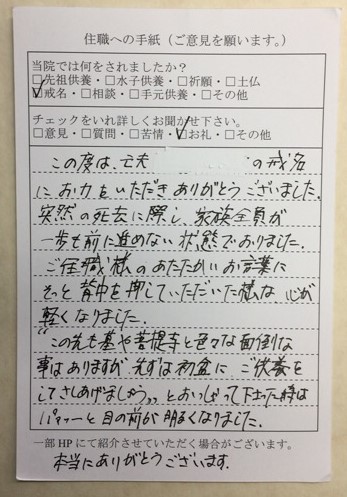 住職への手紙（ご意見を願います。）
当院では何をされましたか？
□先祖供養・□水子供養・□祈願・□土仏
☑戒名・□相談・□手元供養・□その他
チェックをいれ詳しくお聞かせ下さい。
□意見・□質問・□苦情・☑お礼・□その他
この度は、亡夫 の戒名
にお力をいただきありがとうございました。
突然の死去に際し、家族全員が
一歩も前に進めない状態でおりました。
ご住職様のあたたかいお言葉に
そっと背中を押していただいた様な心が
軽くなりました。
"この先も墓や菩提寺と色々な面倒な
事はありますが先ずは初盆にご供養を
してさしあげましょう〟とおっしゃって下さった時は
パァァーと目の前が明るくなりました。
一部HPにて紹介させていただく場合がございます。
本当にありがとうございます。